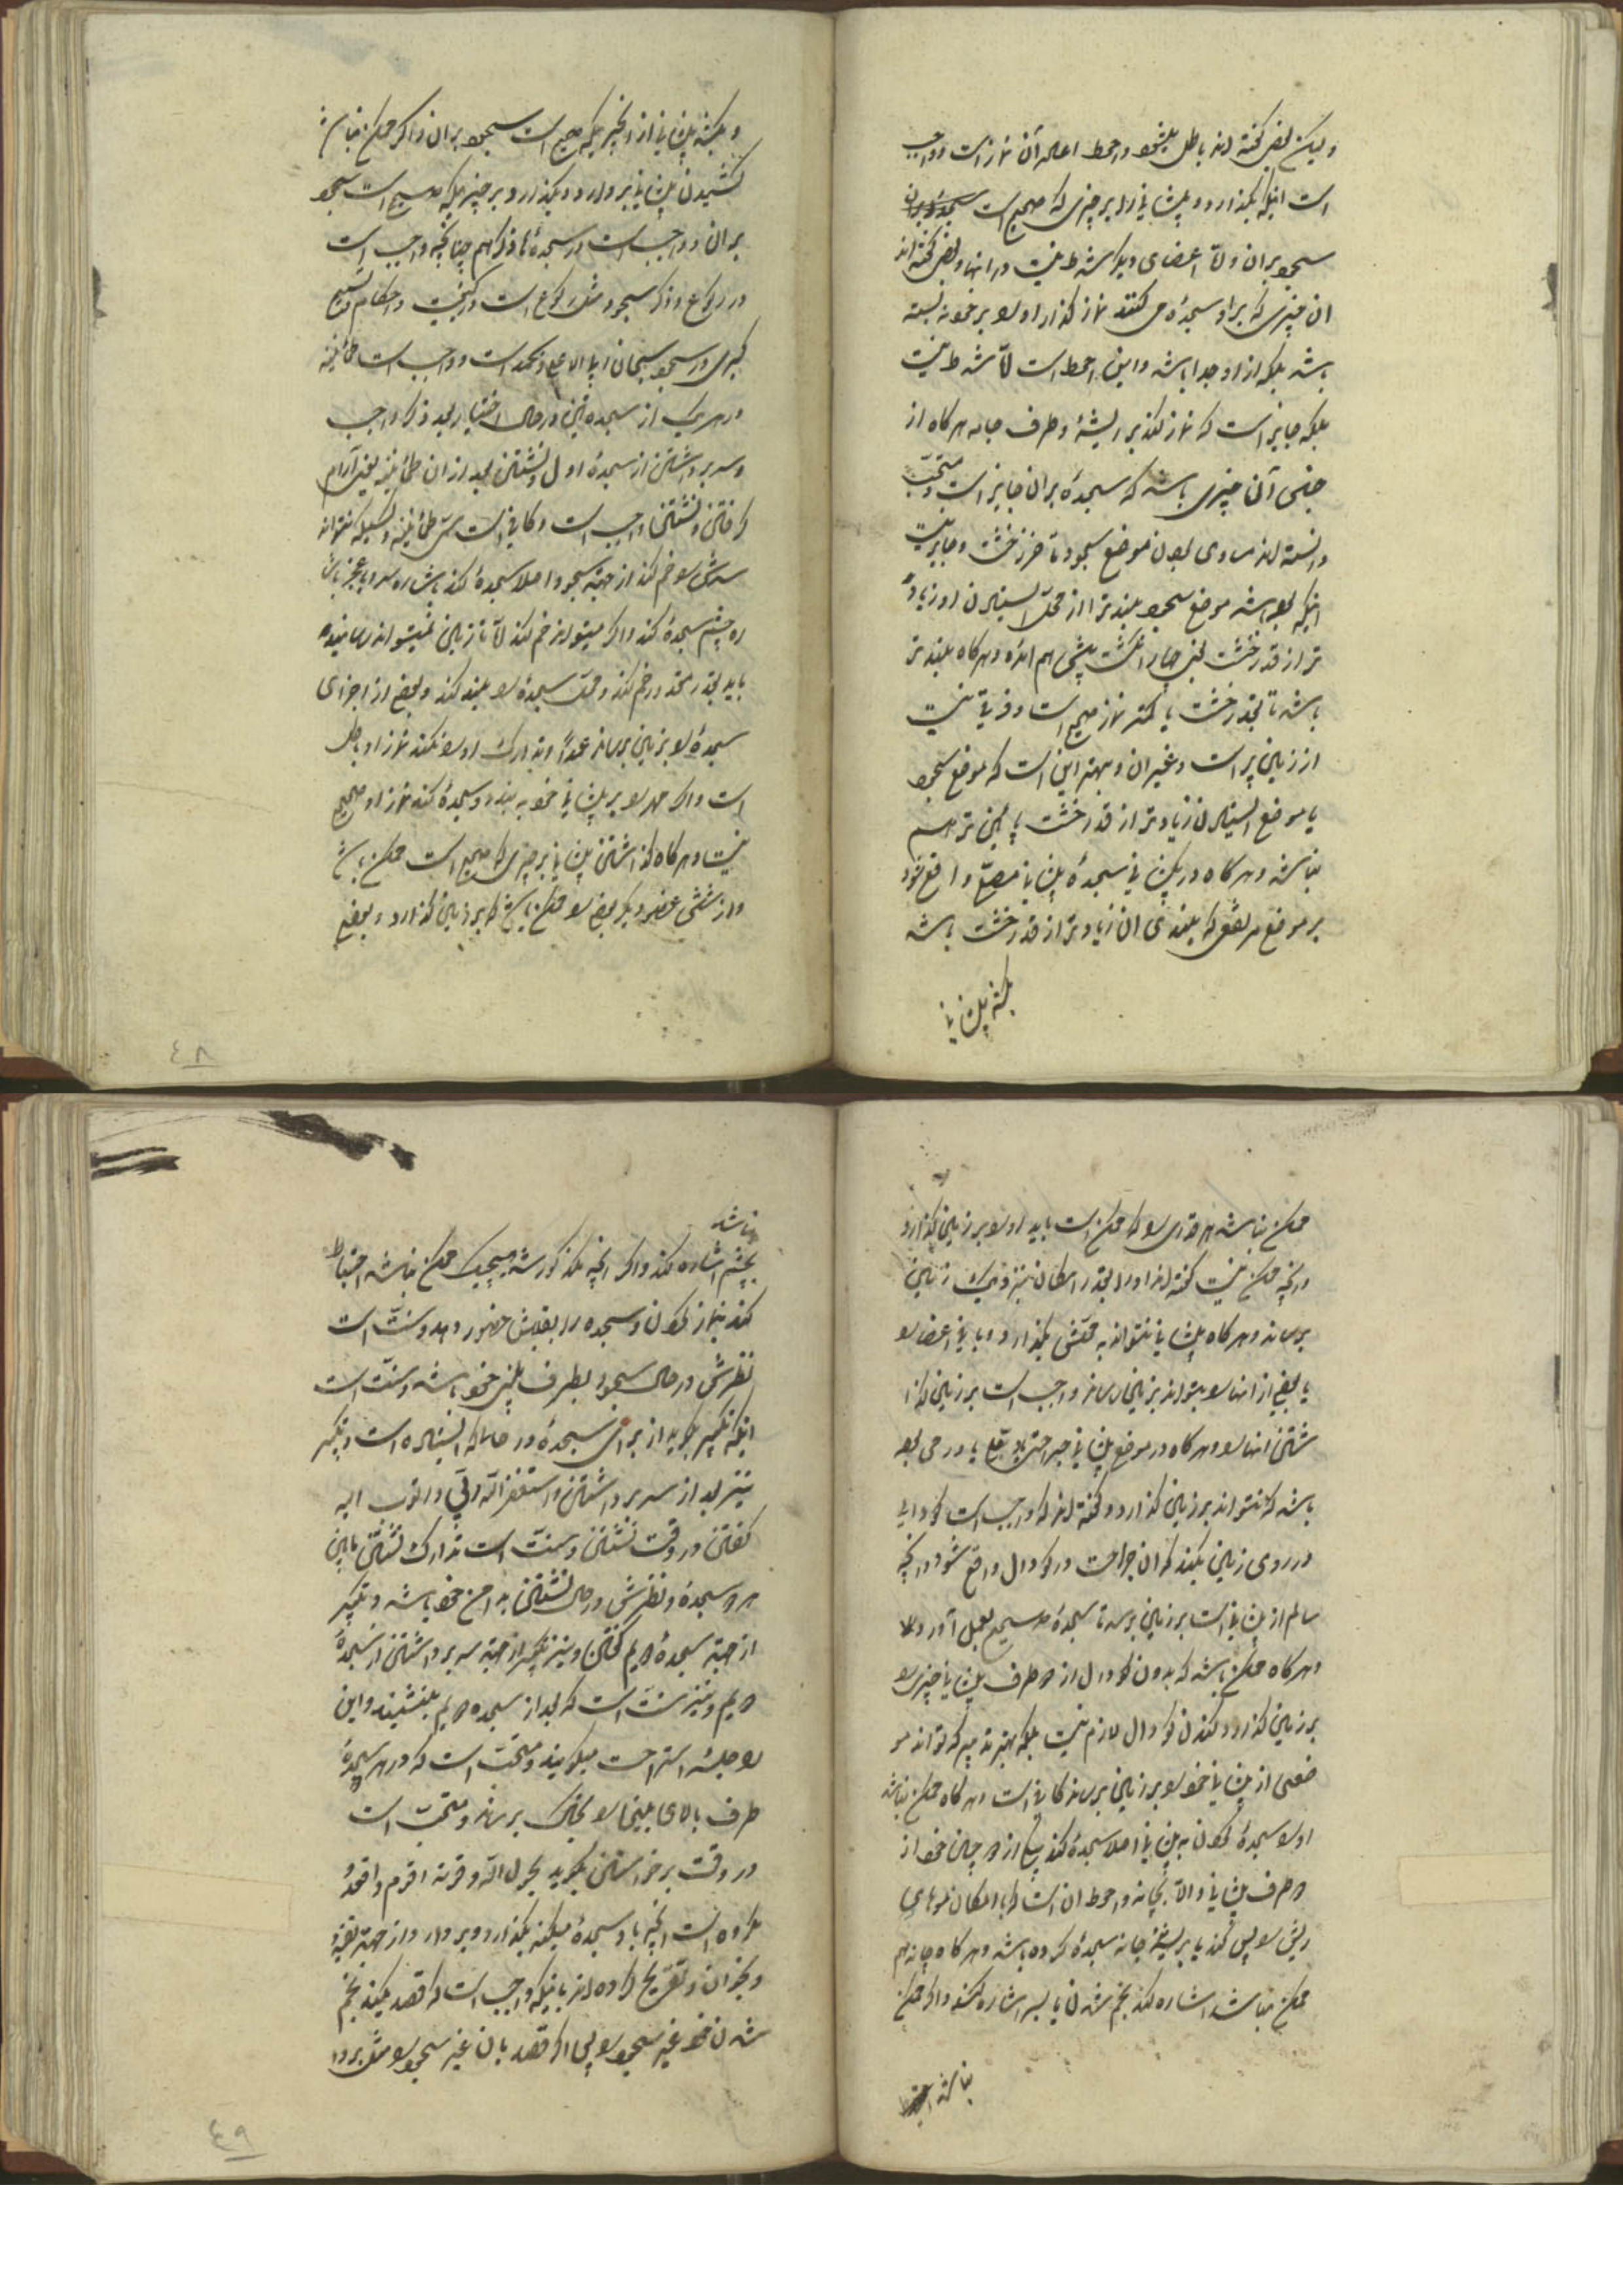 ولیکن بعضی گفته‌اند باطل میشود و احوط اعاده آن نماز است و واجب
است اینکه بگذارد و پیشانی را بر چیزی که صحیح است
سجود بر آن و لا اعضای دیگر شرط نیست در آنها و بعضی گفته‌اند
ان چیزی که بر او سجده می‌کند نماز گذار او را بر خود نبسته
باشد بلکه از او جدا باشد و این احوط است لا شرط نیست
بلکه جایز است که نماز کند بر ریشهٔ و طرف جامه هر گاه از
جنس آن چیزی باشد که سجده بر ان جایز است و مستحب
دانسته‌اند مساوی بودن موضع سجود تا قدر خشت و جایز نیست
اینکه بوده باشد موضع سجود بلندتر از محل ایستادن او زیاده
تر از قدر خشت یعنی چهار انگشت پیش هم آمده و هر گاه بلندتر
باشد تا بقدر خشت یا کمتر نماز صحیح است و فرقی نیست
از زمین پر است و غیر ان و بهتر این است که موضع سجود
یا موضع ایستادن زیادتر از قدر خشت پایین تر هم
نباشد و هر گاه در سجدهٔ پیشانی واقع شود
بر موضع مرتفع که بلندی ان زیادتر از قدر خشت باشد
بکشد پیشانی
و بکشد پیشانی از انجا بچیزیکه صحیح است سجود بر ان و اگر ممکن نباشد
کشیدن پیشانی بردارد و بگذارد بر چیزیکه صحیح است سجود
بر ان و واجب است در سجدهٔ ذکر هم چنانچه واجب است
در رکوع و ذکر سجود مثل رکوع است در کیفیت و احکام و تسبیح
کبری در سجود سبحان ربی الاعلی و بحمده است و واجب است طمأنینه
در هر یک از سجدتین در حال اختیار بقدر ذکر واجب
و سر برداشتن از سجدهٔ اول و نشستن بعد از ان طمأنینه یعنی آرام
گرفتن و نشستن واجب است و کافی است مسمی طمأنینه و کسیکه نتواند
سرش را خم کند از جهة سجود اصلا سجده کند باشاره سر و با عجز باشاره
ره چشم سجده کند و اگر میتواند خم کند لا تا زمین نمیتواند رسانیده
باید بقدر مقدور خم کند و محل سجده را بلند کند و بعضی از اجزای
سجده را بر زمین برساند عمداً و تدارک او را نکند نماز او باطل
است و اگر مهر را بر پیشانی خود ببندد و سجده کند نماز او صحیح
نیست و هر گاه گذاشتن پیشانی بر چیزی که صحیح است ممکن باشد
و از شش عضو دیگر بعضی را ممکن باشد که بر زمین گذارد و بعضی
٤٨
ممکن نباشد هر قدری را که ممکن است باید او را بر زمین بگذارد
و آنچه ممکن نیست گفته‌اند او را بقدر امکان نیز نزدیک زمین
برساند و هر گاه پیشانی نتواند به محلش بگذارد و باقی اعضا را
یا بعضی از انها را بتواند بر زمین رساند واجب است بر زمین گذا
شتن انها را و هر گاه در موضع پیشانی جراحتی یا دملی یا ورمی بوده
باشد که نتواند بر زمین گذارد گفته‌اند که واجب است گودالی
در روی زمین بکند که ان جراحت در گودال واقع شود و آنچه
سالم از پیشانی است بر زمین برسد تا سجدهٔ صحیح بعمل آورد
و هر گاه ممکن باشد که بدون گودال از دو طرف پیشانی چیزی را
بر زمین گذارد کندن گودال لازم نیست بلکه بهر تدبیر که تواند مو
ضعی از پیشانی خود را بر زمین برساند کافی است و هر گاه ممکن نباشد
او را سجده کردن به پیشانی اصلا سجده کند بیکی از دو جانب خود از
دو طرف پیشانی والا بچانه و احوط ان است که با امکان موهای
ریش را پس کند یا بریشه چانه سجده کرده باشد و هر گاه چانه هم
ممکن نباشد اشاره کند بخم شدن یا بسر اشاره کند و اگر ممکن
نباشد
نباشد
بچشم اشاره کند و اگر آنچه مذکور شد هیچیک ممکن نباشد احتیاط
کند نماز کردن و سجده را بقلبش حضور دهد و سنت است
نظرش در حال سجود بطرف بینی خود باشد و سنت است
اینکه تکبیر بگوید از برای سجدهٔ در حالیکه ایستاده است و تکبیر
نیز بعد از سر برداشتن و استغفر الله ربی و اتوب الیه
گفتن در وقت نشستن و سنت است تورک نشستن مابین
هر دو سجده و نظرش در حال نشستن بدامن خود باشد و تکبیر
از جهة سجده دویم گفتن و نیز تکبیر از جهة سر برداشتن از سجدهٔ
دویم و نیز سنت است که بعد از سجده دویم بنشیند و این
را جلسهٔ استراحت میگویند و مستحب است که در هر سجدهٔ
طرف بالای بینی را بخاک برساند و مستحب است
در وقت برخواستن بگوید بحول الله و قوته اقوم و اقعد و
مکروه است آنچه باو سجده میکند بگذارد و بردارد از جهة تقیه
و بجز ان و تصریح کرده‌اند باینکه واجب است که قصد نکند بخم
شدن خود غیر سجود را پس اگر قصد بان غیر سجود را مثل بردا
٤٩